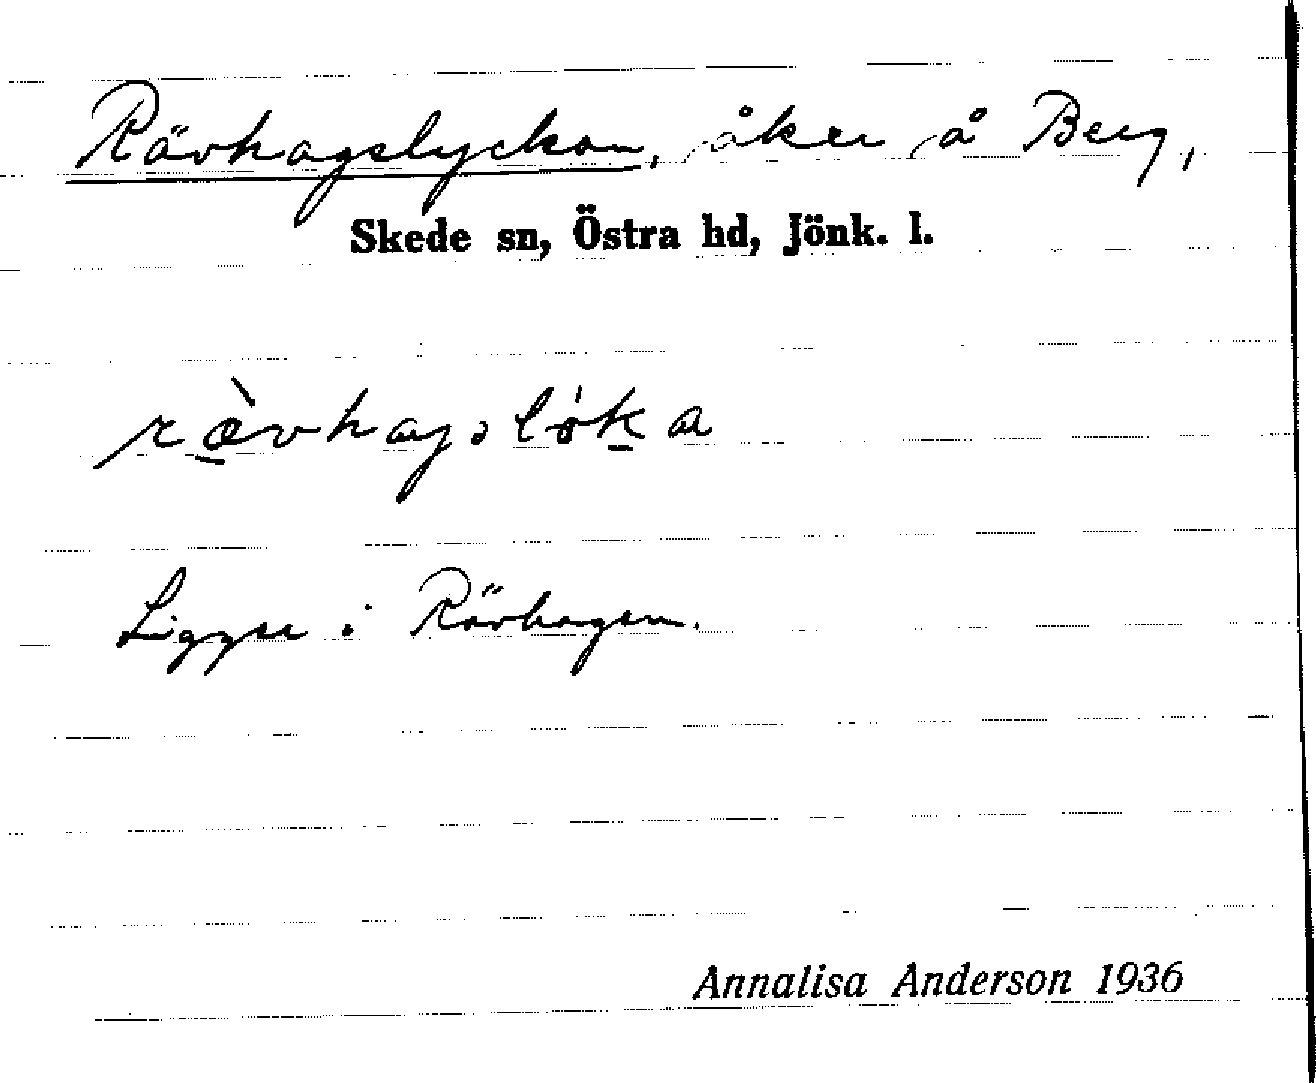 Rävhagslyckan, åker å Berg,
Skede sn, Östra hd, Jönk. l.
ræ̀vhagslöka
Ligger i Rävhagen.
Annalisa Anderson 1936